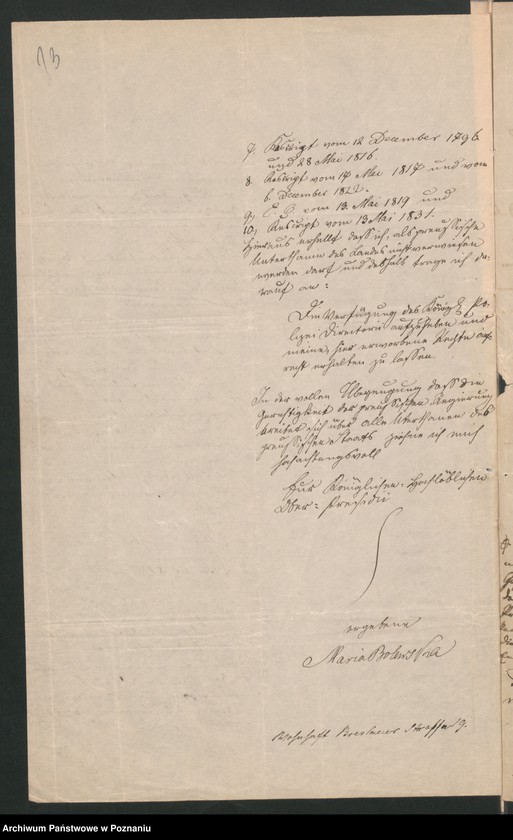 13
7. Rescript vom 12 December 1796
und 28 Mai 1816
8. Rescript vom 14 Mai 1817 und vom
6. December 1822.
9, C. O. vom 13. Mai 1819 und
10, Rescript vom 13 Mai 1831.
Hieraus erhellt daß ich, als preußische
Unterthanin des Landes nicht verwiesen
werden darf und deshalb trage ich da-
rauf an:
Die Verfügung des Königl. Po-
lizei Directorii aufzuheben und
meine, hier erworbene Rechte auf-
recht erhalten zu lassen.
In der vollen Überzeugung daß die
Gerechtigkeit der preußischen Regierung
sich über alle Unterthanen des
preußischen Staats zeichne ich mich
hochachtungsvoll
Eines Königlichen Hochlöblichen
Ober-Praesidii
ergebene
Maria Bolewska
wohnhaft Breslauer Straße 9.
Archiwum Państwowe w Poznaniu